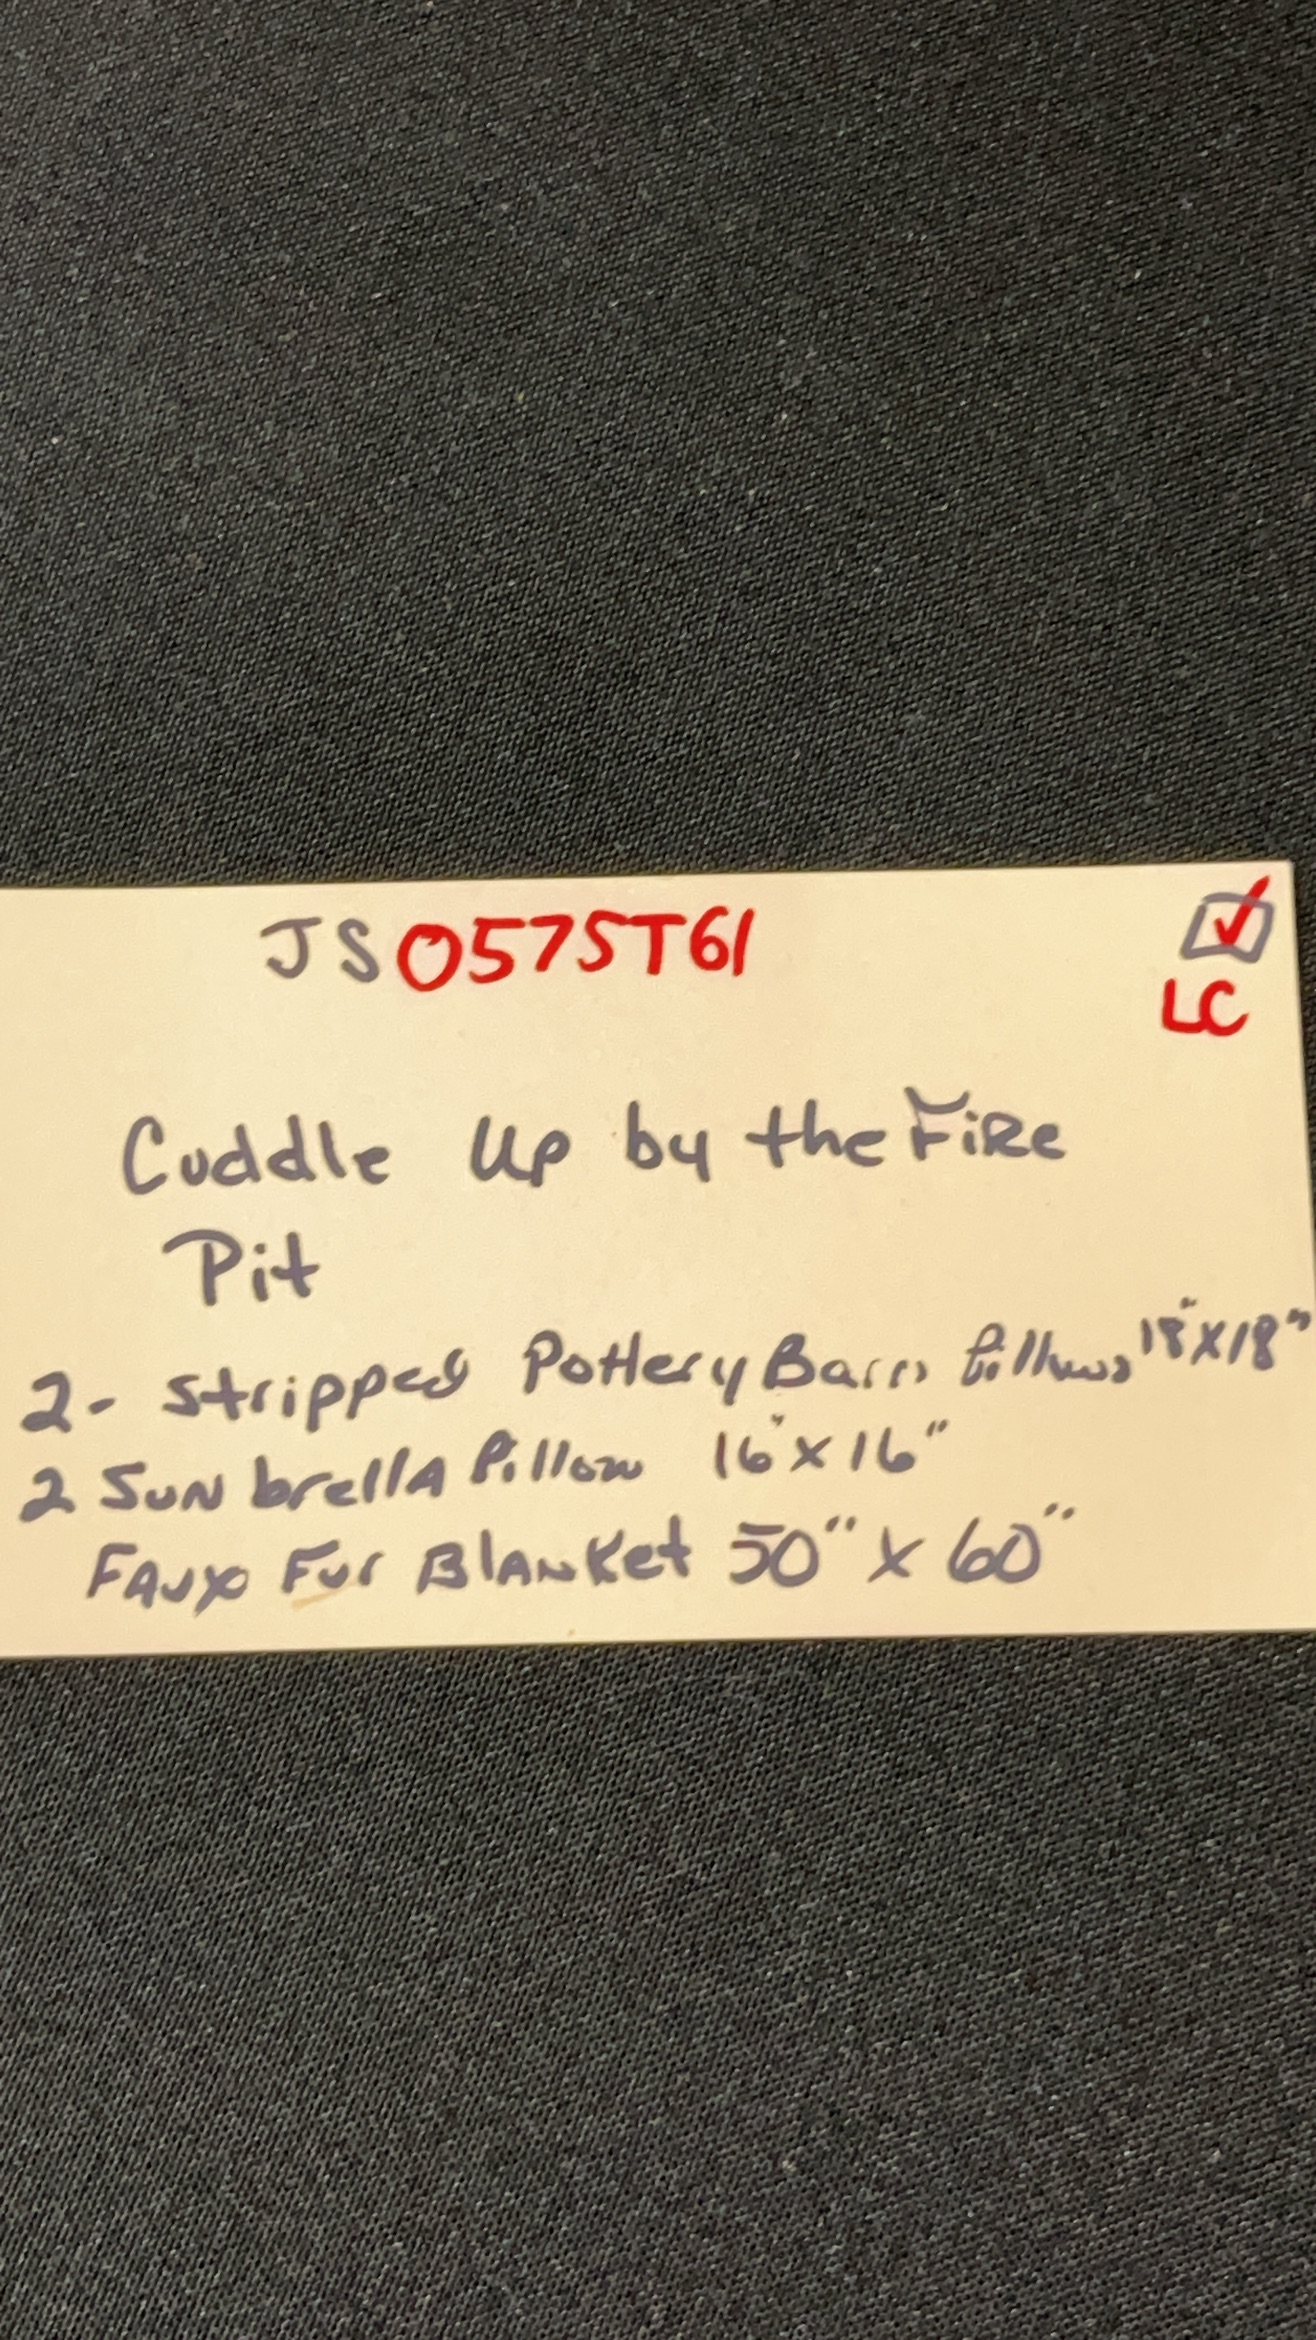 JS0575T61
☑
LC
Cuddle Up by the Fire
Pit
2- Stripped Pottery Barn Pillows 18"X18"
2 Sunbrella Pillow 16"X16"
Faux Fur Blanket 50" X 60"